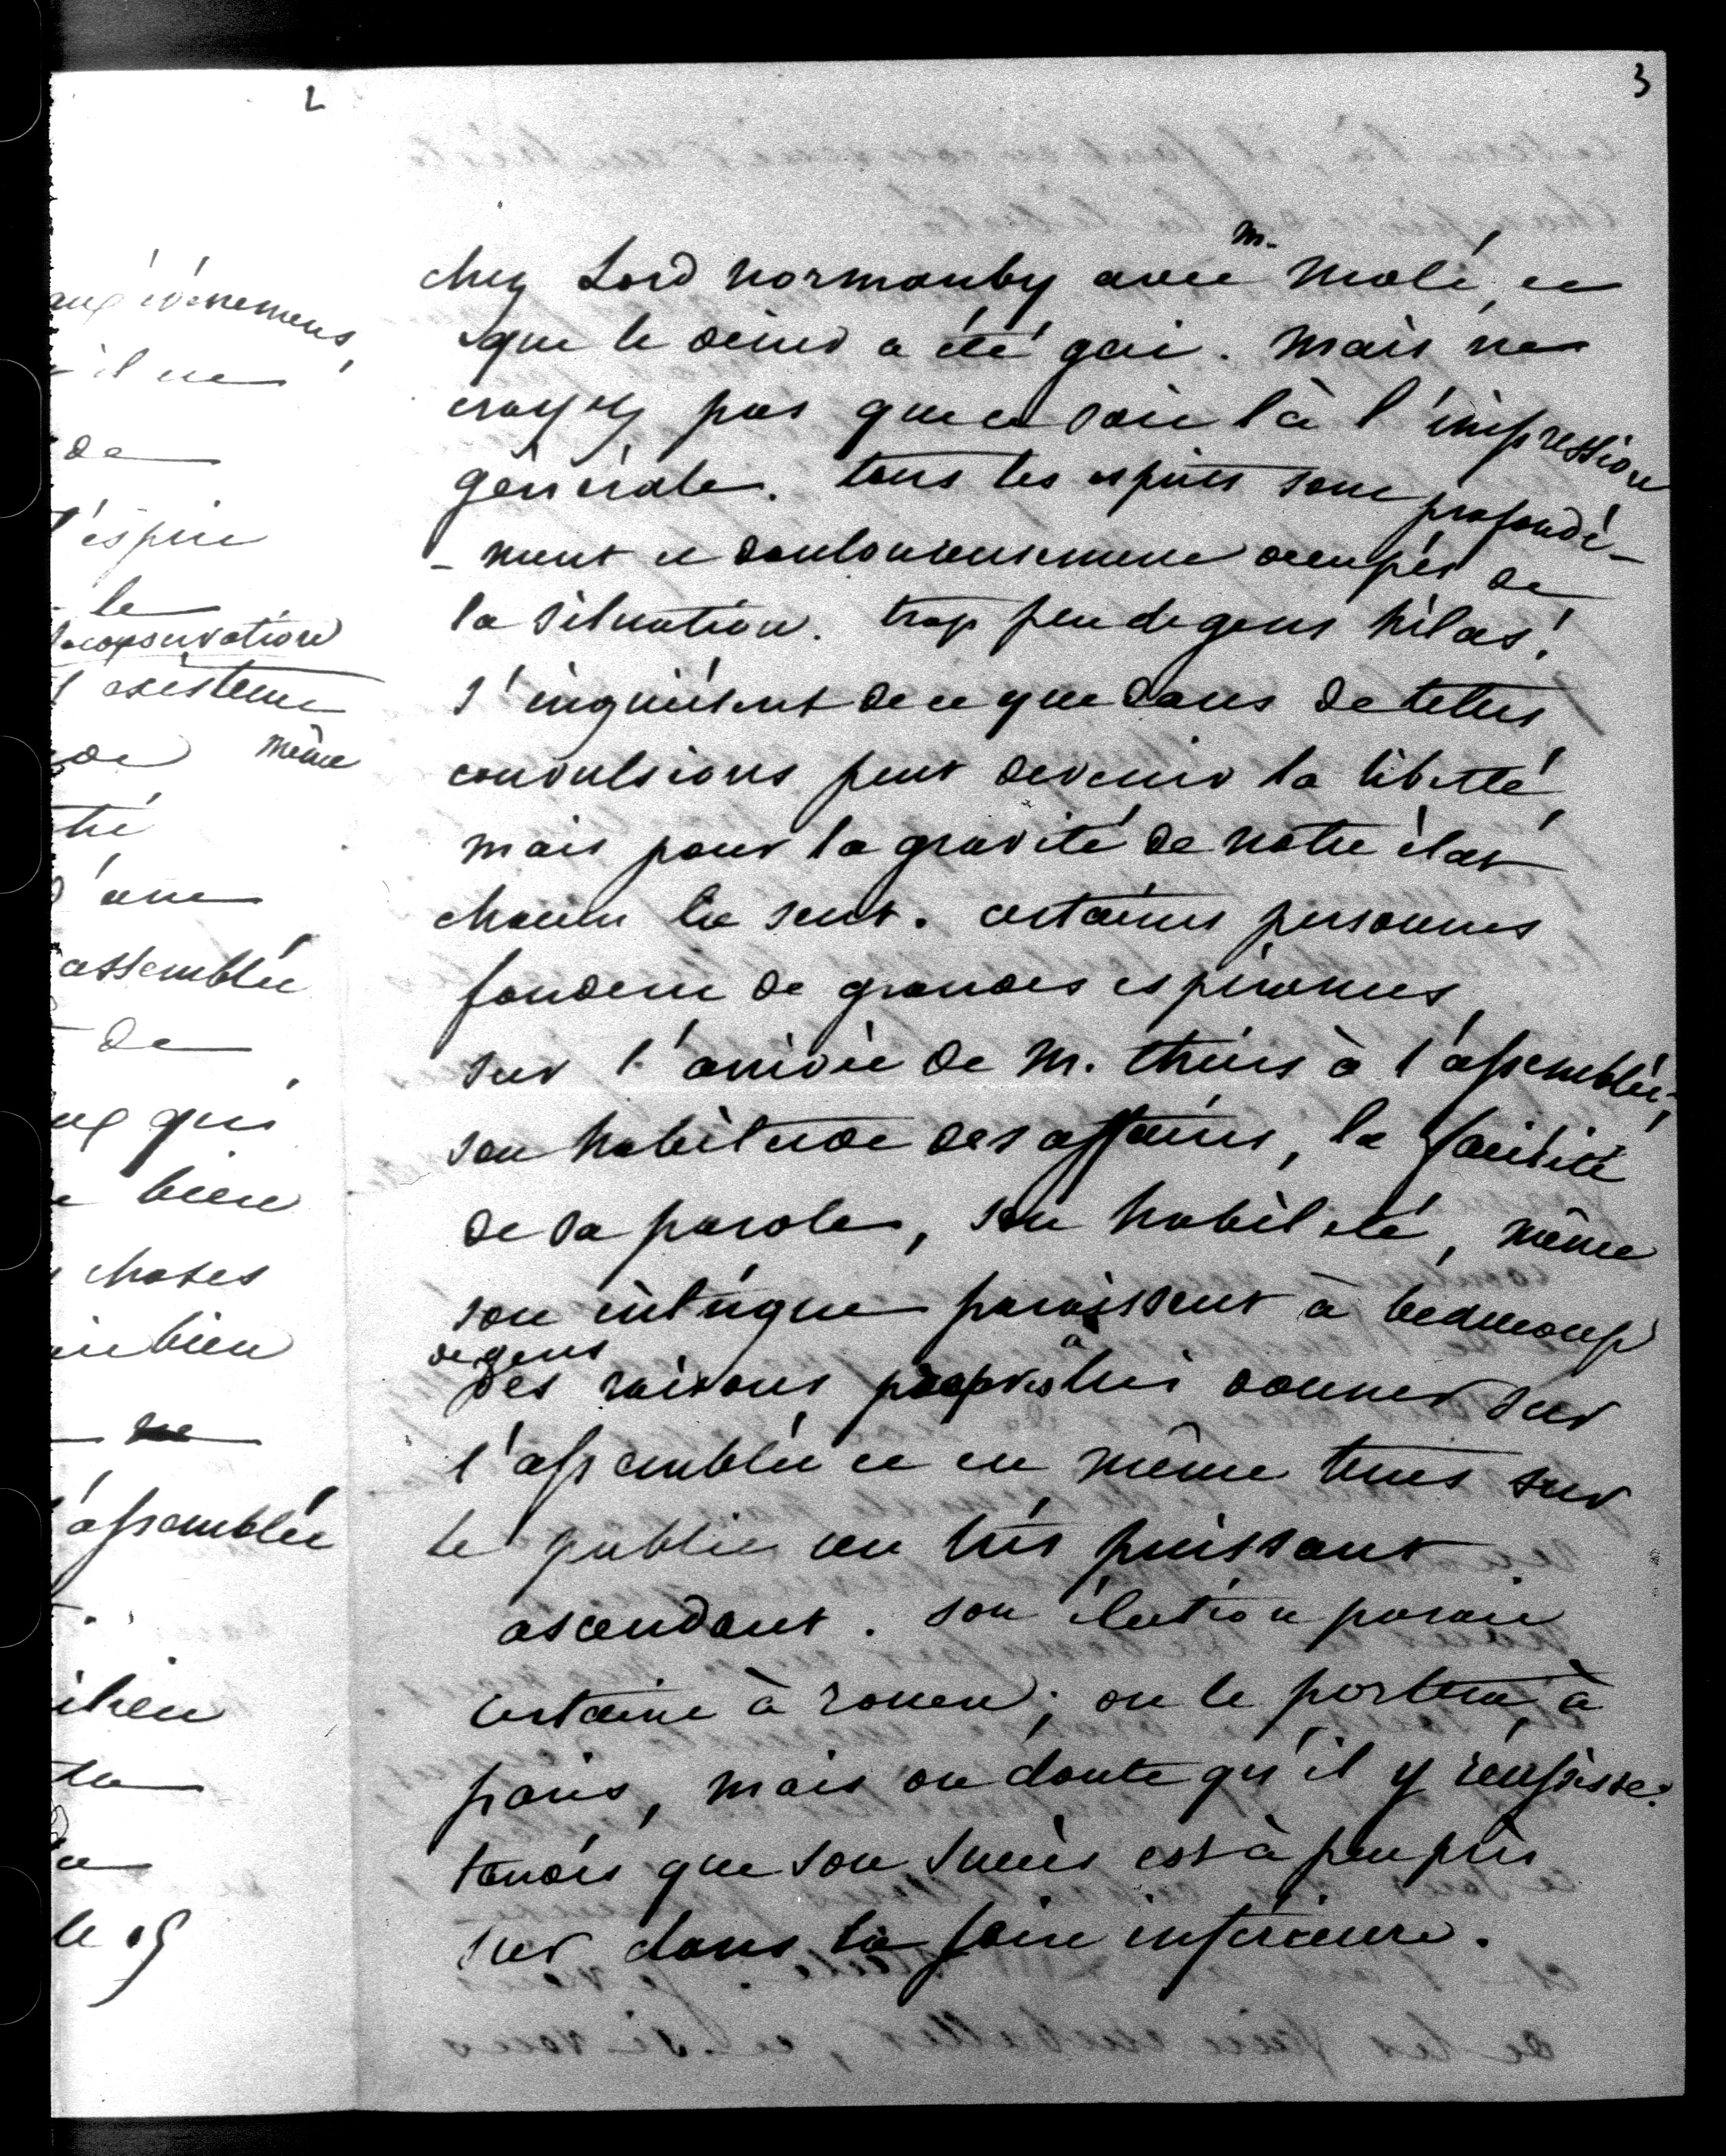 2
aux évènemens,
il ne
de
l'esprit
le
conservation
l'existence
de même
tré
d'une
assemblée
de
ux qui
bien
choses
bien
assemblée
la
le 15
3
chez Lord Normanby avec M. Molé, et
que le diner a été gai. mais ne
croyez pas que ce soit là l'impression
générale. tous les esprits sont profondé-
-ment et douloureusement occupés de
la situation. trop peu de gens hélas!
s'inquiètent de ce que dans de telles
convulsions peut devenir la liberté,
mais pour la gravité de notre état
chacun la sent. certaines personnes
fondent de grandes espérances
sur l'arrivée de M. thiers à l'assemblée;
son habitude des affaires, la facilité
de sa parole, son habileté, même
son intrigue paraissent à beaucoup
de gens
des raisons propres à lui donner sur
l'assemblée et en même tems sur
le public un très puissant
ascendant. son élection parait
certaine à rouen; on le portera à
paris, mais on doute qu'il y réussisse.
tandis que son succès est à peu près
sur dans la seine inférieure.